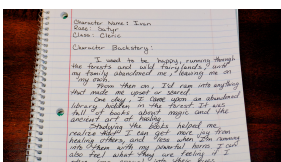 Character Name: Ivan
Race: Satyr
Class: Cleric
Character Backstory:
I used to be happy, running through
the forests and wild fairylands, until
my family abandoned me, leaving me on
my own.
From then on, I'd ram into anything
that made me upset or scared.
One day, I came upon an abandoned
library hidden in the forest. It was
full of books about magic and the
ancient art of healing.
Studying the books helped me
realize that I can get more joy from
healing others, and less when I'm running
into them with my powerful horns. I can
also feel what they are feeling if I